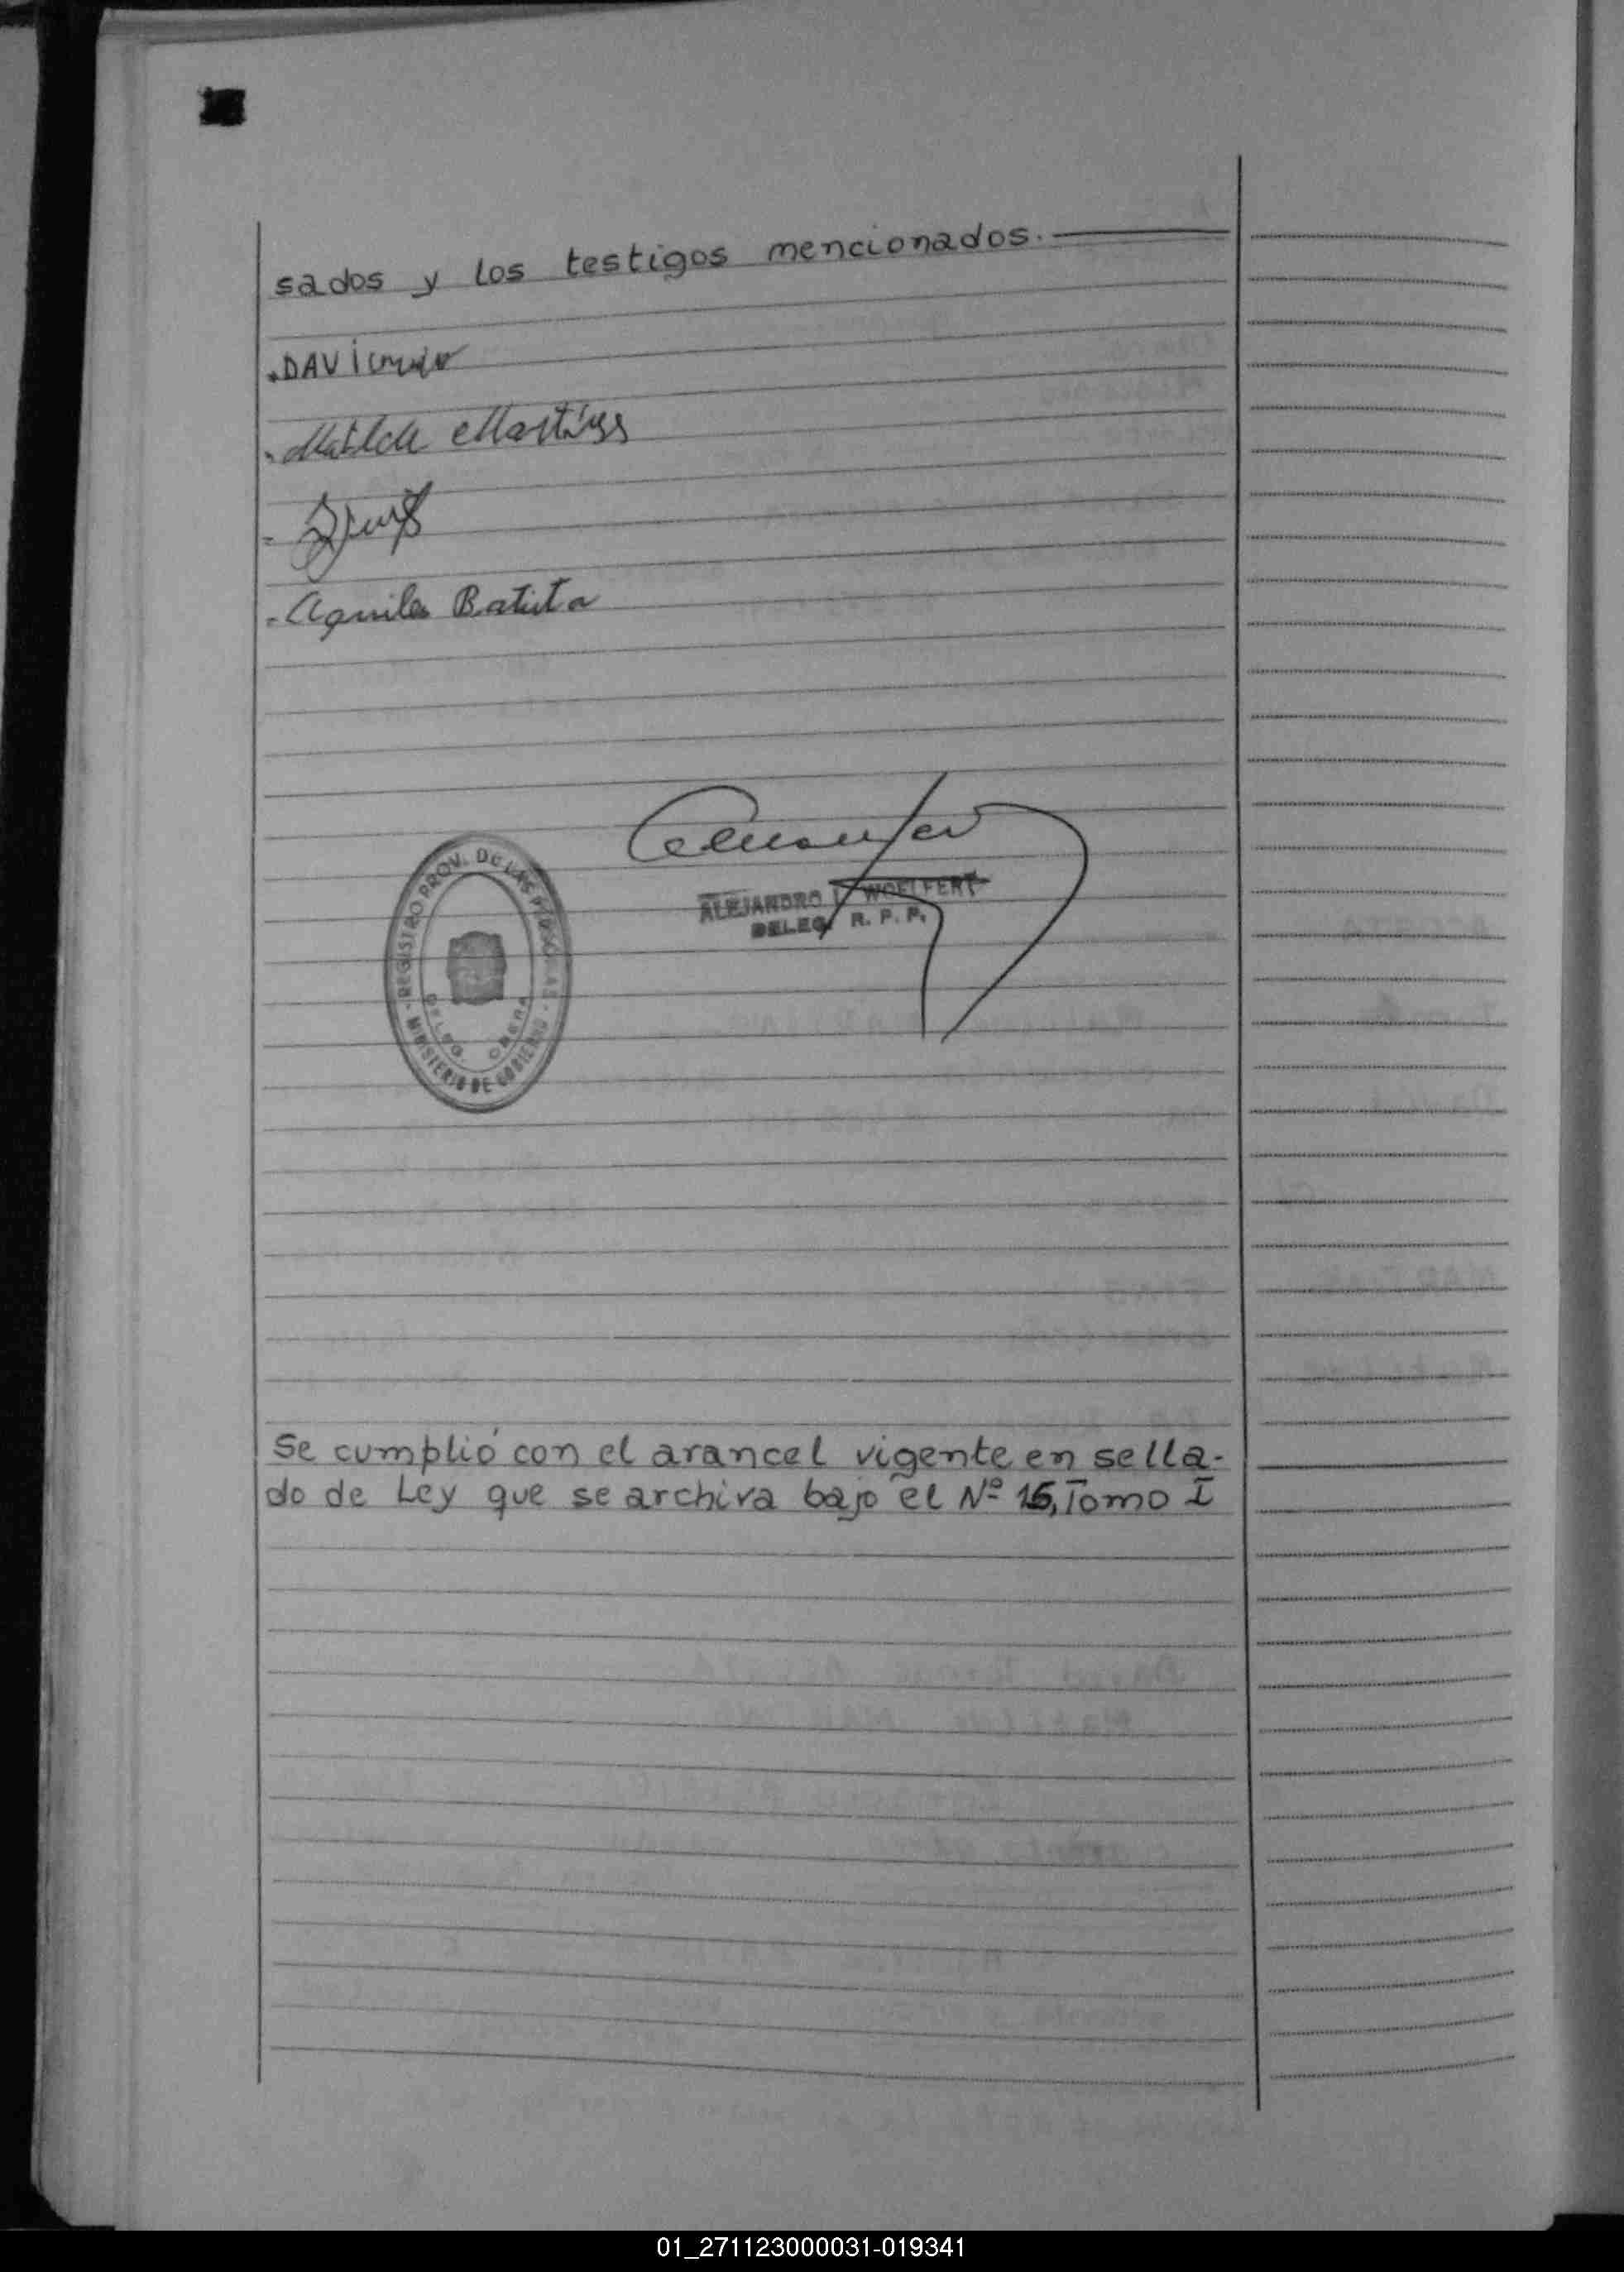 sados y los testigos mencionados.
Matilde Martines
Aquiles Batista
ALEJANDRO L. WOELFERT
DELEG. R. P. P.
REGISTRO PROV. DE LAS PERSONAS
DELEG.
MINISTERIO DE GOBIERNO
Se cumplió con el arancel vigente en sella-
do de Ley que se archiva bajo el Nº 16, Tomo I
01_271123000031-019341